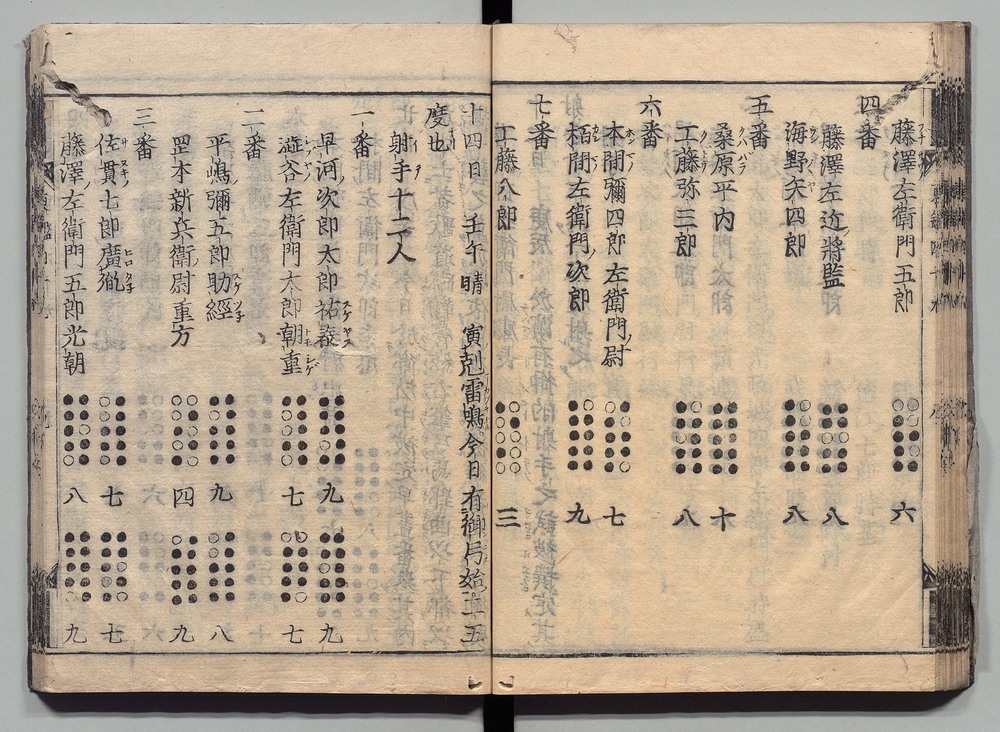 四番
藤澤左衛門五郎 六
藤澤左近將監 八
五番
海野矢四郎 八
桑原平内 十
工藤弥三郎 八
六番
本間彌四郎左衛門尉 七
栢間左衛門次郎 九
七番
工藤八郎 三
十四日 壬午 晴 寅剋雷鳴今日有御弓始二五
度也
射手十二人
一番
早河次郎太郎祐泰 九 九
澁谷左衛門太郎朝重 七 七
二番
平嶋彌五郎助經 九 八
岡本新兵衛尉重方 四 九
三番
佐貫七郎廣胤 七 七
藤澤左衛門五郎光朝 八 九